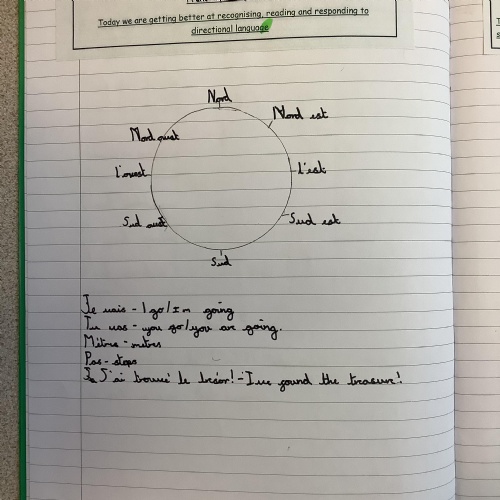 Today we are getting better at recognising, reading and responding to
directional language
Nord
Nord est
Nord ouest
l'ouest
L'est
Sud ouest
Sud est
Sud
Je vais - I go/I'm going
Tu vas - you go/you are going.
Mètres - metres
Pas - steps
J'ai trouvé le trésor! - I've found the treasure!